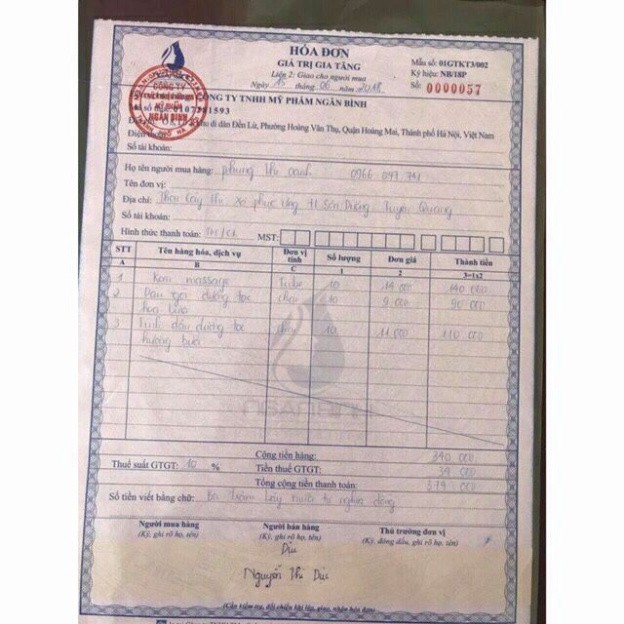 HÓA ĐƠN
GIÁ TRỊ GIA TĂNG
Liên 2: Giao cho người mua
Ngày 15 tháng 06 năm 2018
Mẫu số: 01GTKT3/002
Ký hiệu: NB/18P
Số: 0000057
CÔNG TY TNHH MỸ PHẨM NGÂN BÌNH
Mã số thuế: 0107
Khu di dân Đền Lừ, Phường Hoàng Văn Thụ, Quận Hoàng Mai, Thành phố Hà Nội, Việt Nam
Điện thoại:
Số tài khoản:
Họ tên người mua hàng: Phùng Thị Oanh 0966 047 741
Tên đơn vị:
Địa chỉ: Thôn Cây Thị Xã Phúc Ứng H Sơn Dương Tuyên Quang
Số tài khoản:
Hình thức thanh toán: TM/CK MST:
STT Tên hàng hóa, dịch vụ Đơn vị tính Số lượng Đơn giá Thành tiền
A B C 1 2 3=1x2
1 Kem massage Tube 10 14 000 140 000
2 Dầu gội dưỡng tóc chai 10 9 000 90 000
hoa bưởi
3 Tinh dầu dưỡng tóc chai 10 11 000 110 000
hương bưởi
Cộng tiền hàng: 340 000
Thuế suất GTGT: 10 % Tiền thuế GTGT: 34 000
Tổng cộng tiền thanh toán: 374 000
Số tiền viết bằng chữ: Ba trăm bảy mươi tư nghìn đồng
Người mua hàng Người bán hàng Thủ trưởng đơn vị
(Ký, ghi rõ họ, tên) (Ký, ghi rõ họ, tên) (Ký, đóng dấu, ghi rõ họ, tên)
Dịu
Nguyễn Thị Dịu
(Cần kiểm tra, đối chiếu khi lập, giao, nhận hóa đơn)